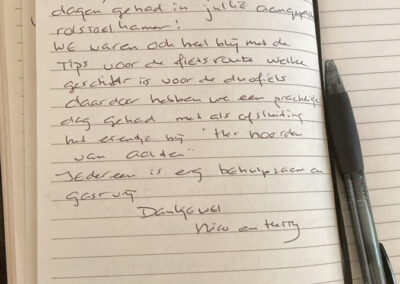 dagen gehad in jullie aangepaste
rolstoelkamer!
We waren ook heel blij met de
tips voor de fietsroute welke
geschikt is voor de duofiets
daardoor hebben we een prachtige
dag gehad met als afsluiting
het eten bij "Het Noorden
van Aalten"
Iedereen is erg behulpzaam en
gastvrij
Dankjewel
Nico en Harry